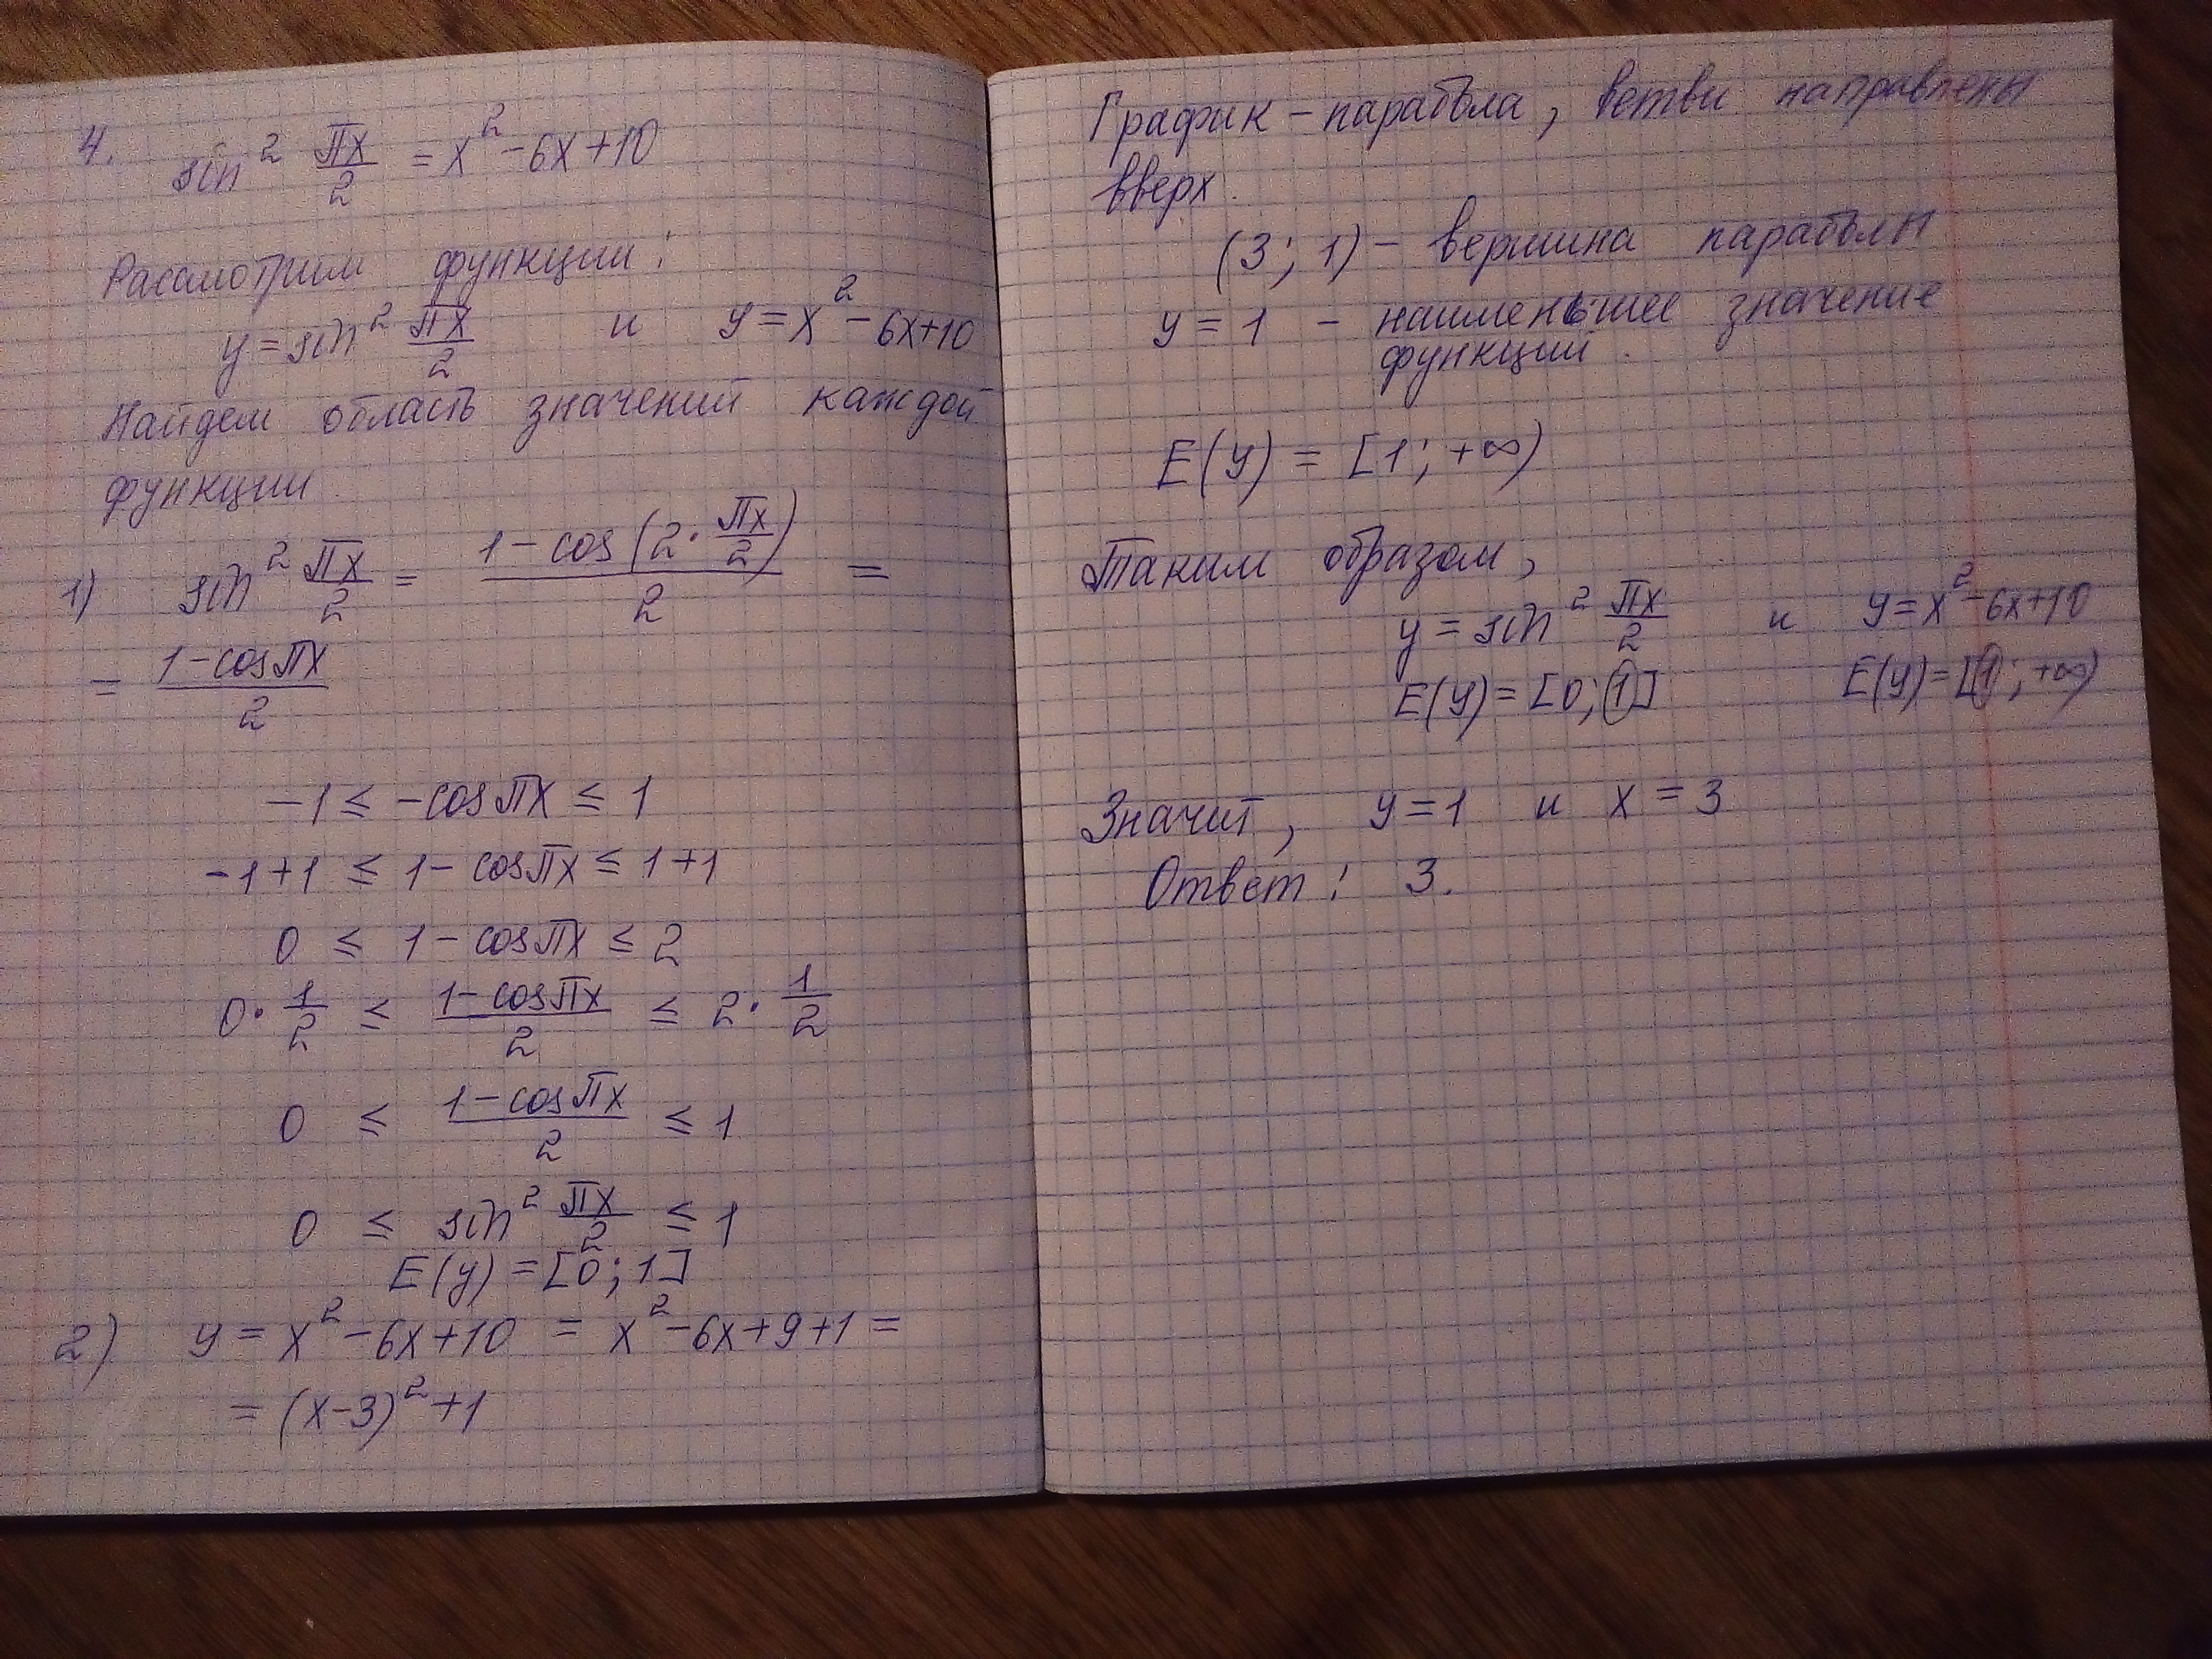 4. sin² πx/2 = x² - 6x + 10
Рассмотрим функции:
y = sin² πx/2 и y = x² - 6x + 10
Найдем область значений каждой
функции
1) sin² πx/2 = (1 - cos(2 · πx/2))/2 =
= (1 - cos πx)/2
-1 ≤ -cos πx ≤ 1
-1 + 1 ≤ 1 - cos πx ≤ 1 + 1
0 ≤ 1 - cos πx ≤ 2
0 · 1/2 ≤ (1 - cos πx)/2 ≤ 2 · 1/2
0 ≤ (1 - cos πx)/2 ≤ 1
0 ≤ sin² πx/2 ≤ 1
E(y) = [0; 1]
2) y = x² - 6x + 10 = x² - 6x + 9 + 1 =
= (x - 3)² + 1
График - парабола, ветви направлены
вверх.
(3; 1) - вершина параболы
y = 1 - наименьшее значение
функции.
E(y) = [1; +∞)
Таким образом,
y = sin² πx/2 и y = x² - 6x + 10
E(y) = [0; 1] E(y) = [1; +∞)
Значит, y = 1 и x = 3
Ответ: 3.